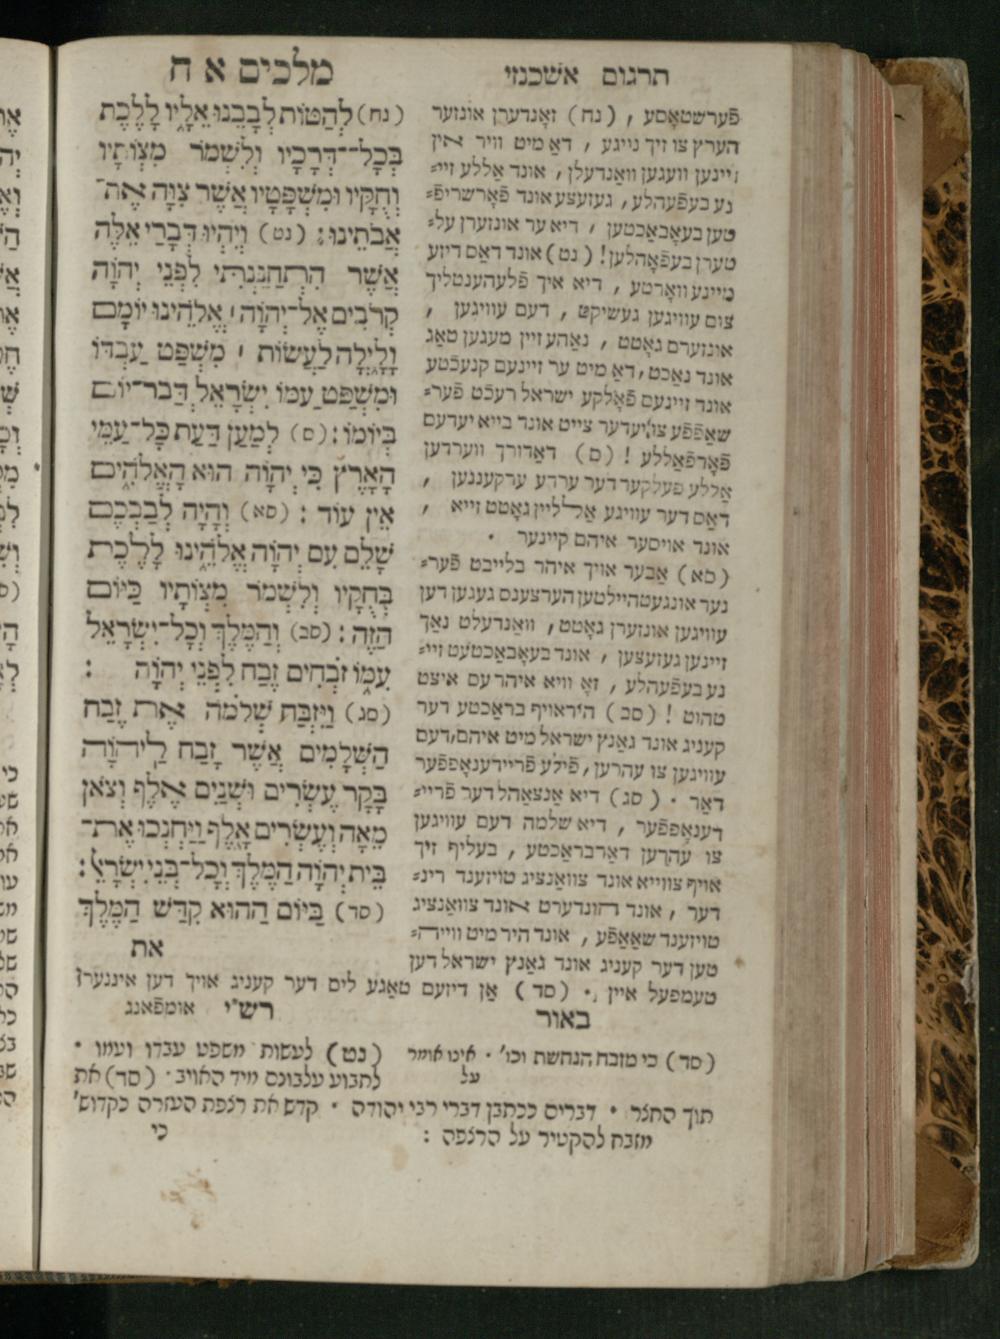 תרגום אשכנזי
מלכים א ח
פֿערשטאָסע , (נח) זאָנדערן אונזער
הערץ צו זיך נייגע , דאַ מיט וויר אין
זיינען וועגען וואַנדעלן, אונד אַללע זיי=
נע בעפֿעהלע, געזעצע אונד פֿאָרשריפֿ=
טען בעאָבאַכטען , דיא ער אונזערן על=
טערן בעפֿאָהלען! (נט) אונד דאַס דיזע
מיינע וואָרטע , דיא איך פֿלעהענטליך
צום עוויגען געשיקט , דעם עוויגען ,
אונזערם גאָטט , נאַהע זיין מעגען טאַג
אונד נאַכט, דאַ מיט ער זיינעם קנעכֿטע
אונד זיינעם פֿאָלקע ישראל רעכֿט פֿער=
שאַפֿפֿע צו יעדער צייט אונד בייא יעדעם
פֿאָרפֿאַללע ! (ס) דאַדורך ווערדען
אַללע פעלקער דער ערדע ערקעננען ,
דאַס דער עוויגע אַלליין גאָטט זייא ,
אונד אויסער איהם קיינער .
(סא) אַבער אויך איהר בלייבט פֿער=
נער אונגעטהיילטען הערצענס געגען דען
עוויגען אונזערן גאָטט, וואַנדעלט נאַך
זיינען געזעצען , אונד בעאָבאַכטעט זיי=
נע בעפֿעהלע , זאָ וויא איהר עס איצט
טהוט ! (סב) היראויף בראַכטע דער
קעניג אונד גאַנץ ישראל מיט איהם, דעם
עוויגען צו עהרען, פֿילע פֿריידענאָפּפֿער
דאַר . (סג) דיא אַנצאַהל דער פֿריי=
דענאָפּפֿער , דיא שלמה דעם עוויגען
צו עהרען דאַרבראַכטע , בעליף זיך
אויף צווייא אונד צוואַנציג טויזענד רינ=
דער , אונד הונדערט אונד צוואַנציג
טויזענד שאַאַפֿע , אונד היר מיט ווייה=
טען דער קעניג אונד גאַנץ ישראל דען
טעמפעל איין . (סד) אַן דיזעם טאַגע ליס דער קעניג אויך דען אינגערן
(נח) לְהַטּוֹת לְבָבֵנוּ אֵלָיו לָלֶכֶת
בְּכָל־דְּרָכָיו וְלִשְׁמֹר מִצְוֹתָיו
וְחֻקָּיו וּמִשְׁפָּטָיו אֲשֶׁר צִוָּה אֶת־
אֲבֹתֵינוּ : (נט) וְיִהְיוּ דְבָרַי אֵלֶּה
אֲשֶׁר הִתְחַנַּנְתִּי לִפְנֵי יְהֹוָה
קְרֹבִים אֶל־יְהֹוָה אֱלֹהֵינוּ יוֹמָם
וָלָיְלָה לַעֲשׂוֹת ׀ מִשְׁפַּט עַבְדּוֹ
וּמִשְׁפַּט עַמּוֹ יִשְׂרָאֵל דְּבַר־יוֹם
בְּיוֹמוֹ : (ס) לְמַעַן דַּעַת כָּל־עַמֵּי
הָאָרֶץ כִּי יְהֹוָה הוּא הָאֱלֹהִים
אֵין עוֹד : (סא) וְהָיָה לְבַבְכֶם
שָׁלֵם עִם יְהֹוָה אֱלֹהֵינוּ לָלֶכֶת
בְּחֻקָּיו וְלִשְׁמֹר מִצְוֹתָיו כַּיּוֹם
הַזֶּה : (סב) וְהַמֶּלֶךְ וְכָל־יִשְׂרָאֵל
עִמּוֹ זֹבְחִים זֶבַח לִפְנֵי יְהֹוָה :
(סג) וַיִּזְבַּח שְׁלֹמֹה אֵת זֶבַח
הַשְּׁלָמִים אֲשֶׁר זָבַח לַיהֹוָה
בָּקָר עֶשְׂרִים וּשְׁנַיִם אֶלֶף וְצֹאן
מֵאָה וְעֶשְׂרִים אָלֶף וַיַּחְנְכוּ אֶת־
בֵּית יְהֹוָה הַמֶּלֶךְ וְכָל־בְּנֵי יִשְׂרָאֵל :
(סד) בַּיּוֹם הַהוּא קִדַּשׁ הַמֶּלֶךְ
את
באור
(סד) כי מזבח הנחשת וכו' . אינו אומר
על
רש"י אומפֿאנג
(נט) לעשות משפט עבדו ועמו .
לתבוע עלבונם מיד האויב . (סד) את
תוך החצר . דברים ככתבן דברי רבי יהודה . קדש את רצפת העזרה בקדוש'
מזבח להקטיר על הרצפה :
כי